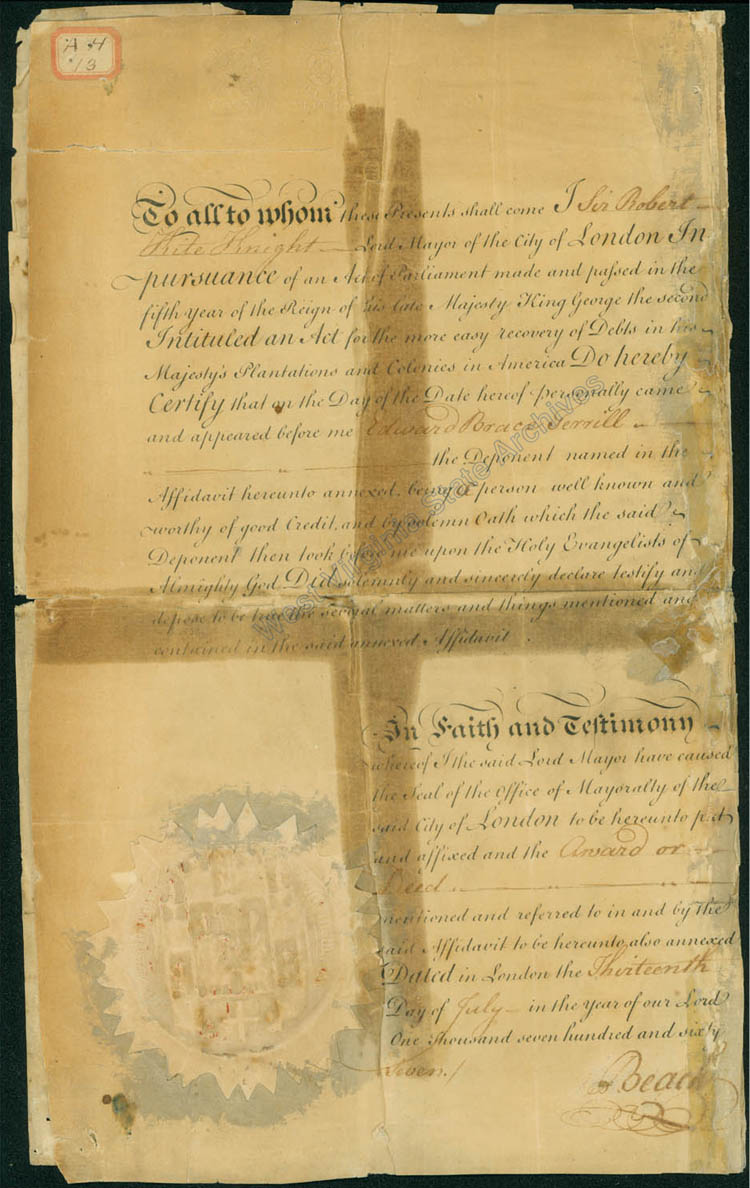 A H
13
To all to whom these Presents shall come I Sir Robert
Kite Knight Lord Mayor of the City of London In
pursuance of an Act of Parliament made and passed in the
fifth year of the Reign of his late Majesty King George the second
Intituled an Act for the more easy recovery of Debts in his
Majesty's Plantations and Colonies in America Do hereby
Certify that on the Day of the Date hereof personally came
and appeared before me Edward Brace Jerrill
the Deponent named in the
Affidavit hereunto annexed, being a person well known and
worthy of good Credit, and by solemn Oath which the said
Deponent then took before me upon the Holy Evangelists of
Almighty God Did solemnly and sincerely declare testify and
depose to be true the several matters and things mentioned and
contained in the said annexed Affidavit.
In Faith and Testimony
whereof I the said Lord Mayor have caused
the Seal of the Office of Mayoralty of the
said City of London to be hereunto put
and affixed and the Award or
Deed
mentioned and referred to in and by the
said Affidavit to be hereunto also annexed
Dated in London the Thirteenth
Day of July in the Year of our Lord
One thousand seven hundred and sixty
Seven./
Beach
West Virginia State Archives